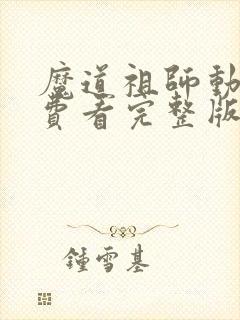 魔道祖師動
費看完整版
鍾雪基